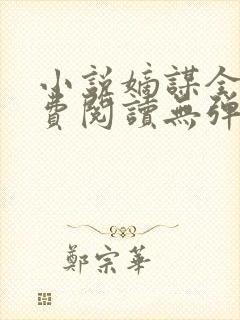 小説嫡謀全
費閱讀無彈
鄭宗華